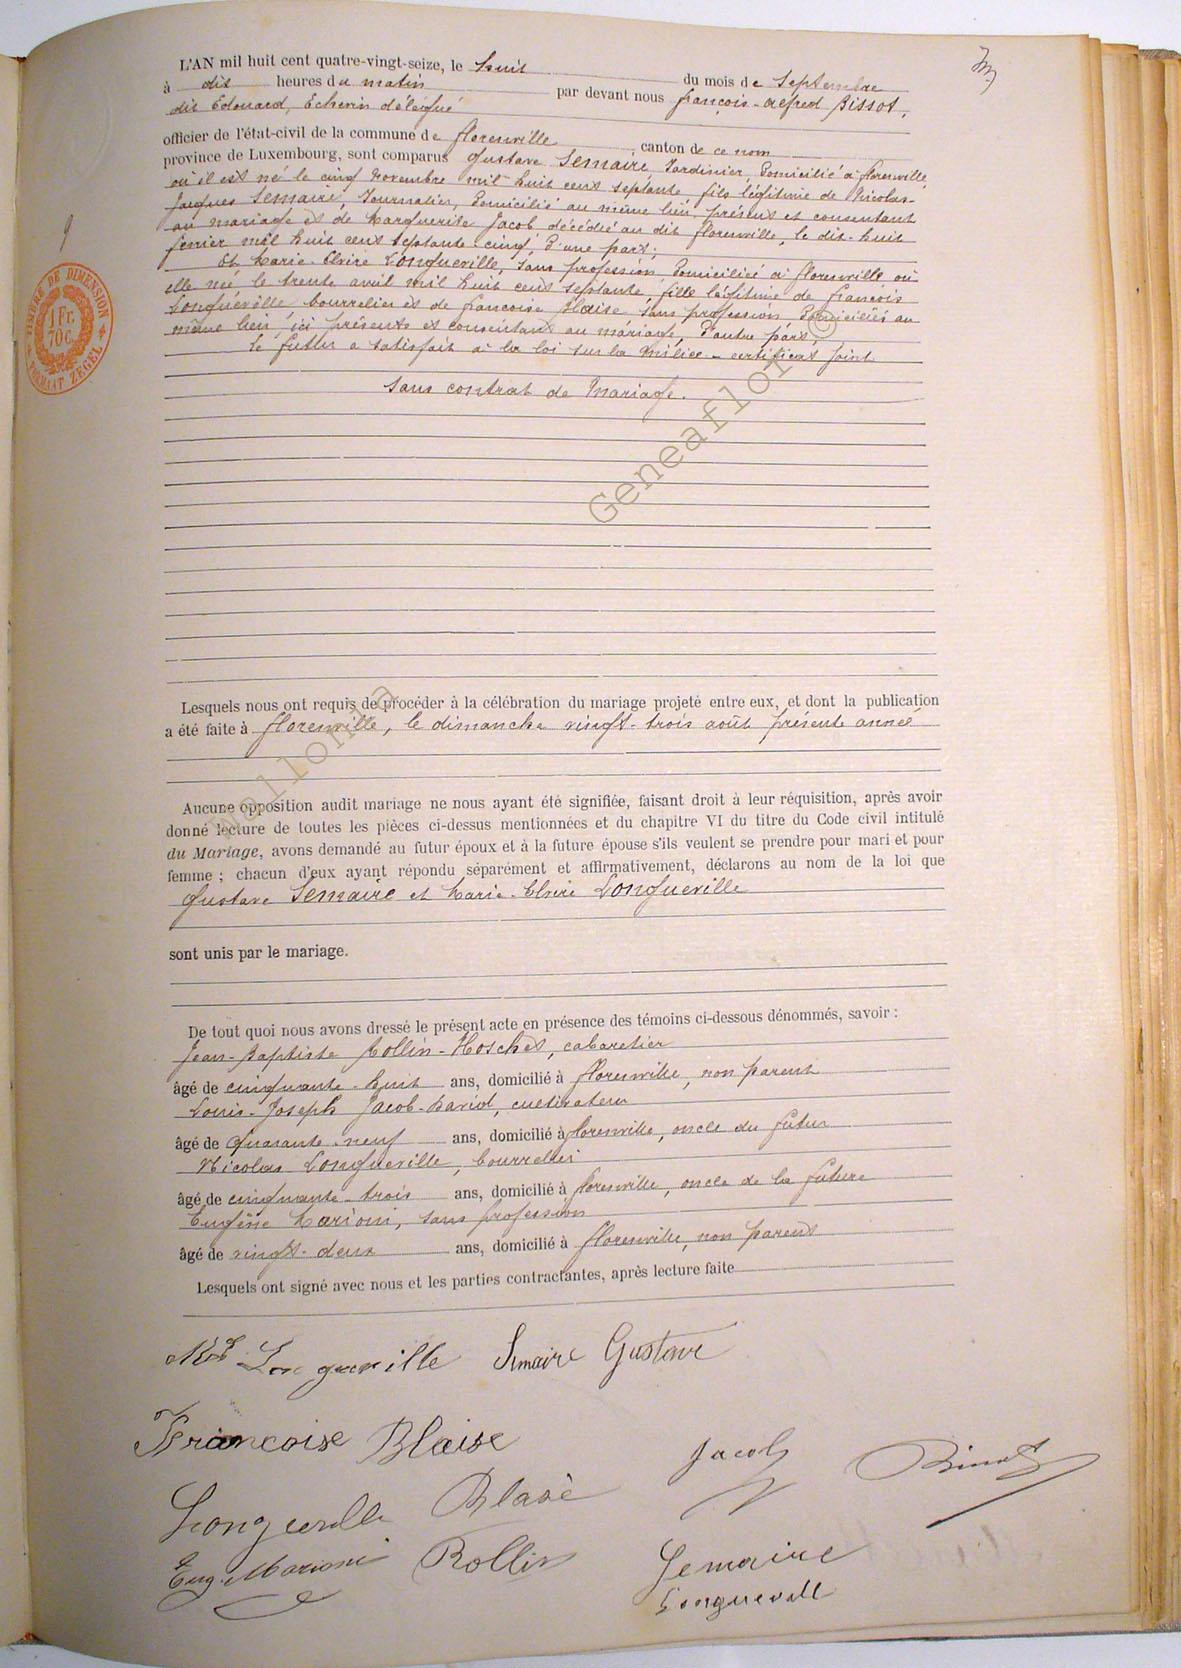 L'AN mil huit cent quatre-vingt-seize, le huit du mois de Septembre
à dix heures du matin par devant nous françois-alfred Bissot,
dit Edouard, Echevin délégué
officier de l'état-civil de la commune de florenville canton de ce nom
province de Luxembourg, sont comparus Gustave Semaire, Jardinier, Domicilié à florenville,
où il est né le cinq Novembre mil huit cent septante fils légitime de Nicolas-
Jacques Semaire, Journalier, Domicilié au même lieu, présent et consentant
au mariage et de Marguerite Jacob décédée au dit florenville, le dix-huit
février mil huit cent septante-cinq, D'une part;
Et Marie-Elvire Longueville, sans profession, Domiciliée à florenville où
elle née le trente avril mil huit cent septante, fille légitime de françois
Longuéville bourrelier et de françoise Blaise, sans profession Domiciliés au
même lieu, ici présents et consentant au mariage, D'autre part;
Le futur a satisfait à la loi sur la milice - certificat joint
Sans contrat de Mariage.
TIMBRE DE DIMENSION
1 Fr.
70 c.
FORMAAT ZEGEL
Geneaflor ©
Wallonia
Lesquels nous ont requis de procéder à la célébration du mariage projeté entre eux, et dont la publication
a été faite à florenville, le dimanche vingt-trois août présente année
Aucune opposition audit mariage ne nous ayant été signifiée, faisant droit à leur réquisition, après avoir
donné lecture de toutes les pièces ci-dessus mentionnées et du chapitre VI du titre du Code civil intitulé
du Mariage, avons demandé au futur époux et à la future épouse s'ils veulent se prendre pour mari et pour
femme ; chacun d'eux ayant répondu séparément et affirmativement, déclarons au nom de la loi que
Gustave Semaire et Marie-Elvire Longueville
sont unis par le mariage.
De tout quoi nous avons dressé le présent acte en présence des témoins ci-dessous dénommés, savoir :
Jean-Baptiste Rollin-Hosches, cabaretier
âgé de cinquante-huit ans, domicilié à florenville, non parent
Louis-Joseph Jacob-David, cultivateur
âgé de quarante-neuf ans, domicilié à florenville, oncle du futur
Nicolas Longueville, bourrelier
âgé de cinquante-trois ans, domicilié à florenville, oncle de la future
Eugène Marioni, sans profession
âgé de vingt-deux ans, domicilié à florenville, non parent
Lesquels ont signé avec nous et les parties contractantes, après lecture faite
Longueville Semaire Gustave
Francoise Blaise Jacob Bissot
Longueville Blaise
Eug. Marioni Rollin Semaire
Longueville